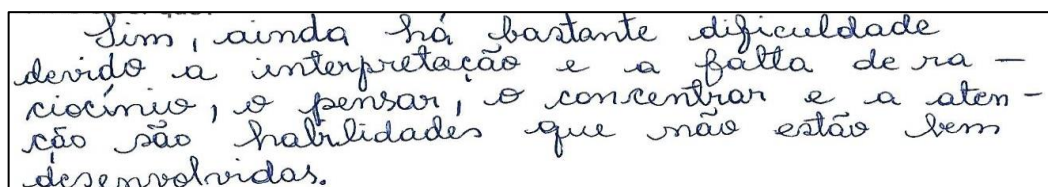 Sim, ainda há bastante dificuldade
devido a interpretação e a falta de ra-
ciocínio, o pensar, o concentrar e a aten-
ção são habilidades que não estão bem
desenvolvidas.